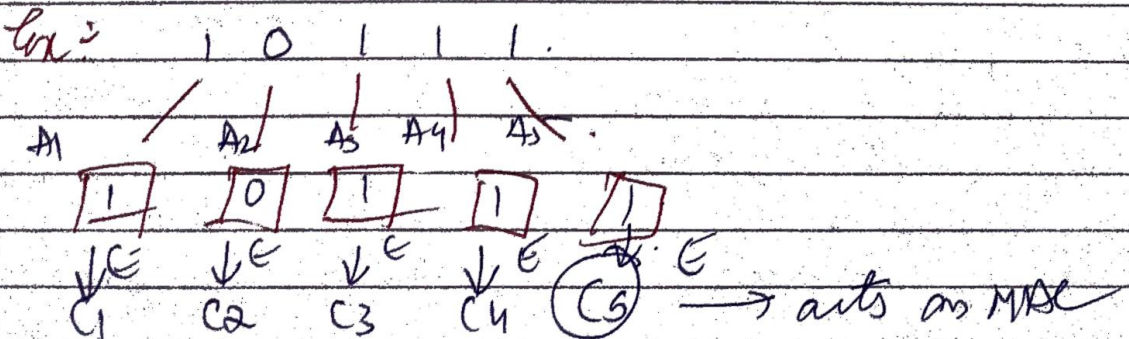 Ex:- 1 0 1 1 1.
A1 A2 A3 A4 A5.
1 0 1 1 1
E E E E E
C1 C2 C3 C4 C5 → acts as MAC